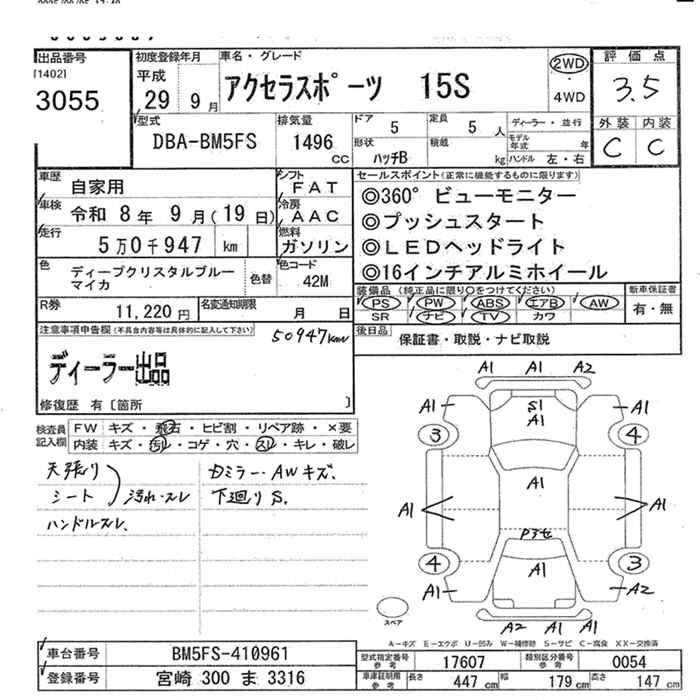 出品番号
[1402]
3055
初度登録年月
平成
29 9月
車名・グレード
アクセラスポーツ 15S
2WD
4WD
評価点
3.5
型式
DBA-BM5FS
排気量
1496
CC
ドア 5
形状
ハッチB
定員 5 人
積載 kg
ディーラー・並行
モデル年式 年
ハンドル 左・右
外装 内装
C C
車歴
自家用
車検 令和 8年 9月(19日)
走行
5万0千947 km
シフト
FAT
冷房
AAC
燃料
ガソリン
セールスポイント(正常に機能するものに限ります)
◎360°ビューモニター
◎プッシュスタート
◎LEDヘッドライト
◎16インチアルミホイール
色
ディープクリスタルブルー
マイカ
色替
色コード
42M
装備品(純正品に限り○をつけてください)
PS PW ABS エアB AW
SR ナビ TV カワ
新車保証書
有・無
R券
11,220円
名変通知期限
月 日
後日品
保証書・取説・ナビ取説
注意事項申告欄(不具合内容等は具体的に記入して下さい)
50947km
ディーラー出品
修復歴 有〔箇所 〕
検査員
記入欄
FW キズ・飛石・ヒビ割・リペア跡・×要
内装 キズ・汚レ・コゲ・穴・スレ・キレ・破レ
天張り
シート 汚れ・スレ
ハンドルスレ
Dミラー・AWキズ.
下廻りS.
A1 A1 A2
A1 S1 A1
A1
3 4
A1
A1 A1
4 3
A1
A1 A2
A2 A1 A1
スペア
A-キズ E-エクボ U-凹み W-補修跡 S-サビ C-腐食 XX-交換済
車台番号 BM5FS-410961
登録番号 宮崎 300 ま 3316
型式指定番号
参考
17607
類別区分番号
参考
0054
車庫証明用
参考
長さ 447 cm
幅 179 cm
高さ 147 cm